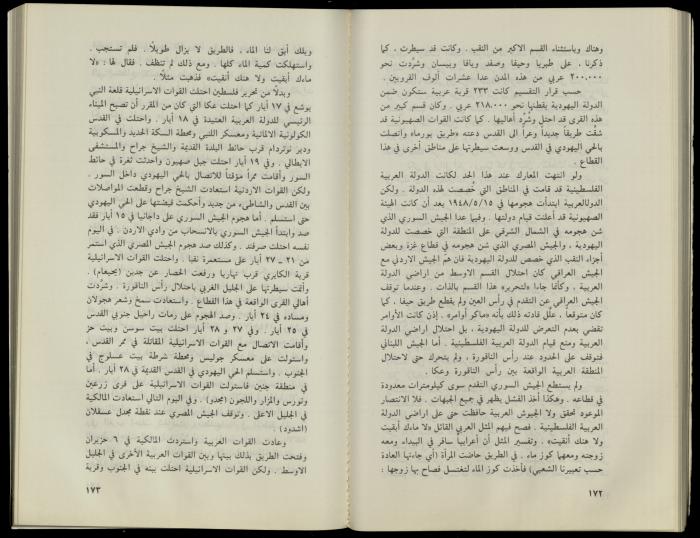 وهناك وباستثناء القسم الاكبر من النقب . وكانت قد سيطرت ، كما
ذكرنا ، على طبريا وحيفا وصفد ويافا وبيسان وشرّدت نحو
٢٠٠,٠٠٠ عربي من هذه المدن عدا عشرات ألوف القرويين .
حسب قرار التقسيم كانت ٢٣٣ قرية عربية ستكون ضمن
الدولة اليهودية يقطنها نحو ٢١٨,٠٠٠ عربي . وكان قسم كبير من
هذه القرى قد احتل وشُرّد أهاليها . كما كانت القوات الصهيونية قد
شقّت طريقاً جديداً وعراً الى القدس دعته «طريق بورما» واتصلت
بالحي اليهودي في القدس ووسعت سيطرتها على مناطق أخرى في هذا
القطاع .
ولو انتهت المعارك عند هذا الحد لكانت الدولة العربية
الفلسطينية قد قامت في المناطق التي خُصصت لهذه الدولة . ولكن
الدول العربية ابتدأت هجومها في ١٩٤٨/٥/١٥ بعد أن كانت الهيئة
الصهيونية قد أعلنت قيام دولتها . وفيما عدا الجيش السوري الذي
شن هجومه في الشمال الشرقي على المنطقة التي خصصت للدولة
اليهودية ، والجيش المصري الذي شن هجومه في قطاع غزة وبعض
أجزاء النقب الذي خصص للدولة اليهودية فان همّ الجيش الاردني مع
الجيش العراقي كان احتلال القسم الاوسط من اراضي الدولة
العربية ، وكأنما جاءا «لتحرير» هذا القسم بالذات . وعندما توقف
الجيش العراقي عن التقدم في رأس العين ولم يقطع طريق حيفا ، كما
كان متوقعاً ، علّل قادته ذلك بأنه «ماكو أوامر» . إذن كانت الأوامر
تقضي بعدم التعرض للدولة اليهودية ، بل احتلال اراضي الدولة
العربية ومنع قيام الدولة العربية الفلسطينية . أما الجيش اللبناني
فتوقف على الحدود عند رأس الناقورة ، ولم يتحرك حتى لاحتلال
المنطقة العربية الواقعة بين رأس الناقورة وعكا .
ولم يستطع الجيش السوري التقدم سوى كيلومترات معدودة
في قطاعه . وهكذا أخذ الفشل يظهر في جميع الجبهات . فلا الانتصار
الموعود تحقق ولا الجيوش العربية حافظت حتى على اراضي الدولة
العربية الفلسطينية . فصح فيهم المثل العربي القائل «لا ماءك أبقيت
ولا هنك أنقيت» . وتفسير المثل أن أعرابياً سافر في البيداء ومعه
زوجته ومعهما كوز ماء . في الطريق حاضت المرأة (أي جاءتها العادة
حسب تعبيرنا الشعبي) فأخذت كوز الماء لتغتسل فصاح بها زوجها :
١٧٢
ويلك أبق لنا الماء ، فالطريق لا يزال طويلاً . فلم تستجب .
واستهلكت كمية الماء كلها . ومع ذلك لم تنظف . فقال لها : «لا
ماءك أبقيت ولا هنك أنقيت» فذهبت مثلاً .
وبدلاً من تحرير فلسطين احتلت القوات الاسرائيلية قلعة النبي
يوشع في ١٧ أيار كما احتلت عكا التي كان من المقرر أن تصبح الميناء
الرئيسي للدولة العربية العتيدة في ١٨ أيار . واحتلت في القدس
الكولونية الالمانية ومعسكر اللنبي ومحطة السكة الحديد والمسكوبية
ودير نوتردام قرب حائط البلدة القديمة والشيخ جراح والمستشفى
الايطالي . وفي ١٩ أيار احتلت جبل صهيون واحدثت ثغرة في حائط
السور وأقامت ممراً مؤقتاً للاتصال بالحي اليهودي داخل السور .
ولكن القوات الاردنية استعادت الشيخ جراح وقطعت المواصلات
بين القدس والشاطىء من جديد وأحكمت قبضتها على الحي اليهودي
حتى استسلم . أما هجوم الجيش السوري على داجانيا في ١٥ أيار فقد
صد وابتدأ الجيش السوري بالانسحاب من وادي الاردن . في اليوم
نفسه احتلت صرفند . وكذلك صد هجوم الجيش المصري الذي استمر
من ٢١ – ٢٧ أيار على مستعمرة نقبا . واحتلت القوات الاسرائيلية
قرية الكابري قرب نهاريا ورفعت الحصار عن جدين (يحيعام) .
وأتمّت سيطرتها على الجليل الغربي باحتلال رأس الناقورة . وشرّدت
أهالي القرى الواقعة في هذا القطاع . واستعادت سمخ وشعر هجولان
ومساده في ٢٤ أيار . وصد الهجوم على رمات راحيل جنوبي القدس
في ٢٥ أيار . وفي ٢٧ و ٢٨ أيار احتلت بيت سوسن وبيت جز
وأقامت الاتصال مع القوات الاسرائيلية المقاتلة في ممر القدس ،
واستولت على معسكر جوليس ومحطة شرطة بيت عسلوج في
الجنوب . واستسلم الحي اليهودي في القدس القديمة في ٢٨ أيار . أما
في منطقة جنين فاستولت القوات الاسرائيلية على قرى زرعين
ونورس والمزار واللجون (مجدو) . وفي اليوم التالي استعادت المالكية
في الجليل الاعلى . وتوقف الجيش المصري عند نقطة مجدل عسقلان
(اشدود) :
وعادت القوات العربية واستردت المالكية في ٦ حزيران
وفتحت الطريق بذلك بينها وبين القوات العربية الأخرى في الجليل
الاوسط . ولكن القوات الاسرائيلية احتلت يبنه في الجنوب وقرية
١٧٣